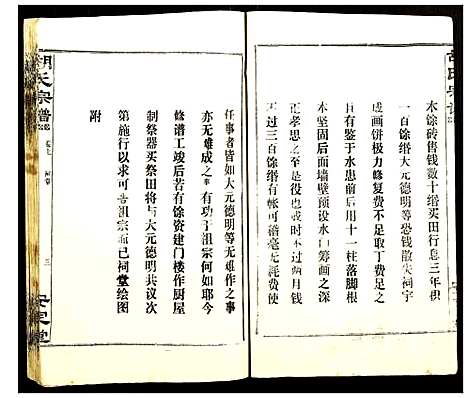 胡氏宗譜
木馀砖售钱数十缗买田行息三年积
一百馀缗大元德明等恐钱散失祠宇
成画饼极力修复费不足取丁费足之
且有鉴于水患前后用十一柱落脚根
本坚固后面墙壁预设水口筹画之深
正孝思之至是役也或时不过两月钱
不过三百馀缗有帐可稽毫无耗费使
任事者皆如大元德明等无难作之事
亦无难成之事有功于祖宗何如耶今
修谱工竣后若有馀资建门楼作厨屋
制祭器买祭田将与大元德明共议次
第施行以求可告祖宗而已祠堂绘图
附
胡氏宗譜
卷七
三
安定堂